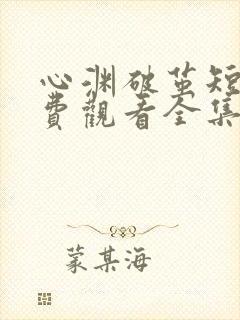 心渊破茧短
費觀看全集
蒙某海